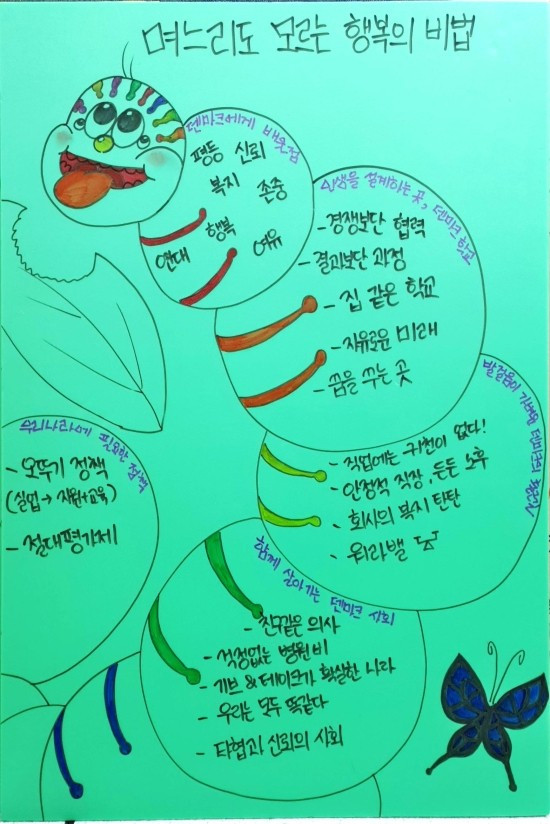 며느리도 모르는 행복의 비법
덴마크에게 배울점
평등 신뢰
복지 존중
연대 행복 여유
인생을 설계하는 곳, 덴마크 학교
-경쟁보단 협력
-결과보단 과정
- 집 같은 학교
-자유로운 미래
-꿈을 꾸는 곳
발걸음이 가벼운 덴마크의 회사
- 직업에는 귀천이 없다!
- 안정적 직장, 든든 노후
- 회사의 복지 탄탄
- 워라밸
함께 살아가는 덴마크 사회
- 친구같은 의사
- 걱정없는 병원비
- 기브&테이크가 확실한 나라
- 우리는 모두 똑같다
- 타협과 신뢰의 사회
우리나라에 필요한 정책
- 오뚜기 정책
(실업→지원+교육)
- 절대평가제